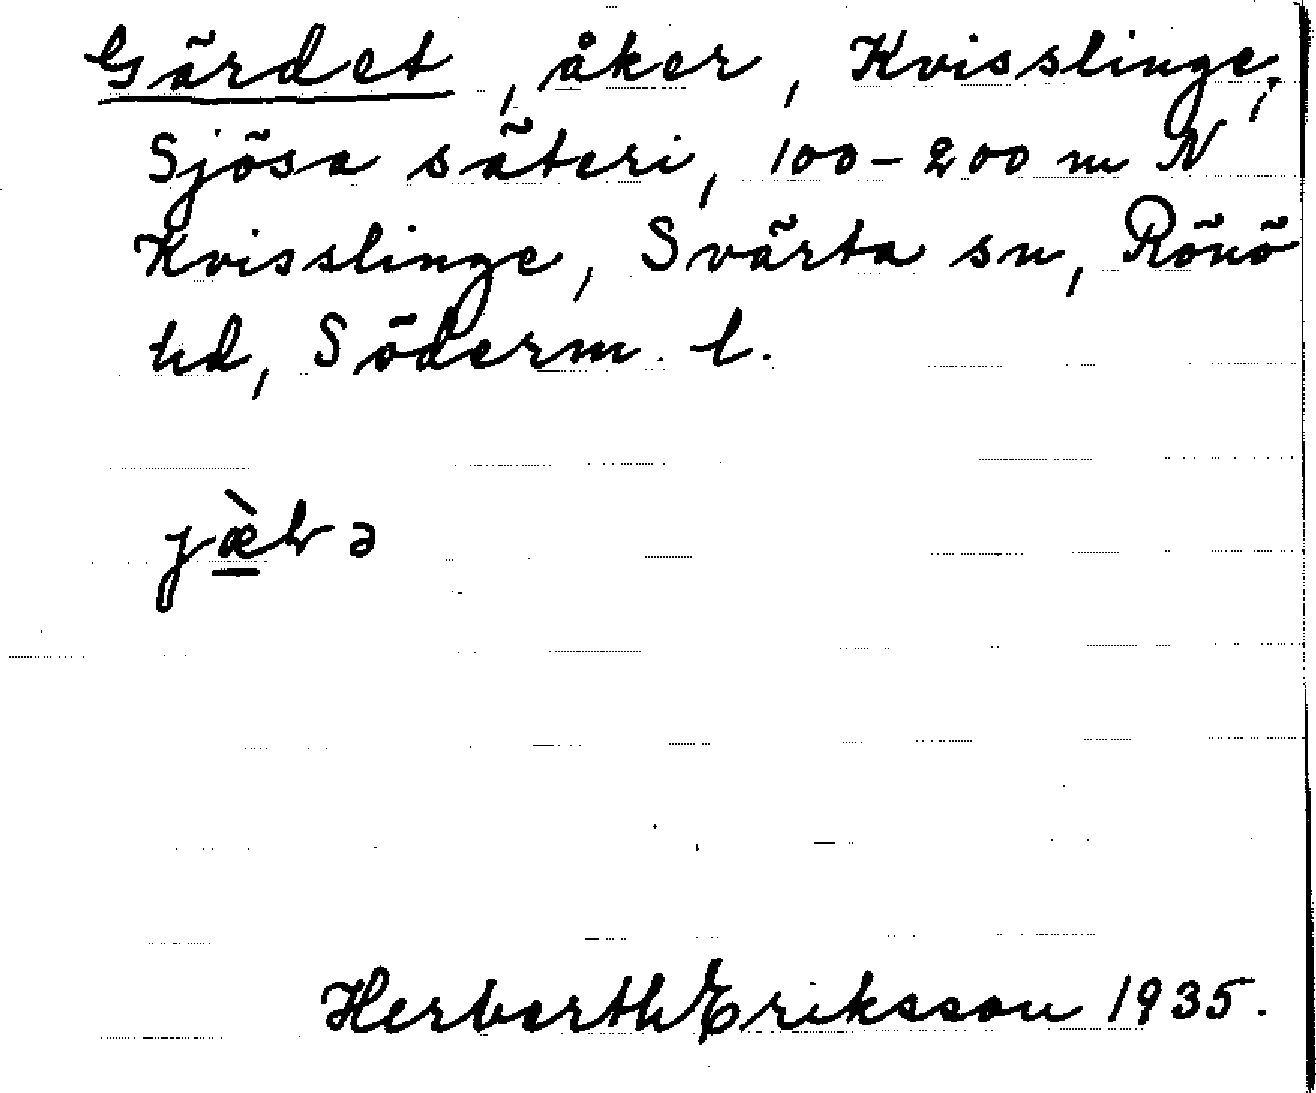 Gärdet, åker, Kvisslinge,
Sjösa säteri, 100-200 m N
Kvisslinge, Svärta sn, Rönö
hd, Söderm. l.
Herberth Eriksson 1935.